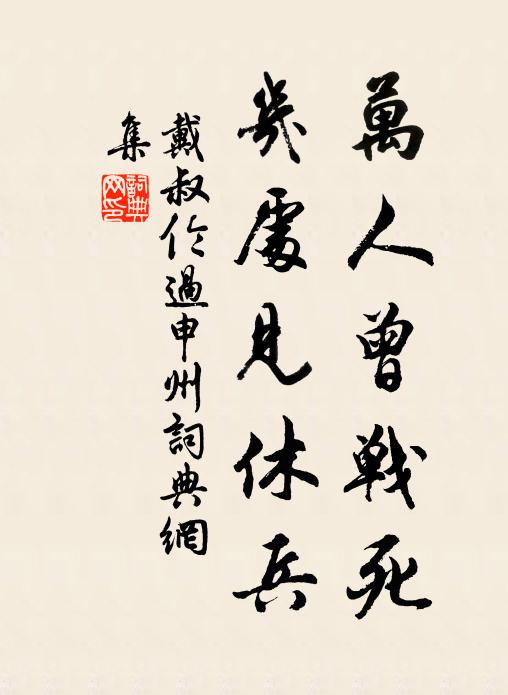 萬人曾戰死
幾處見休兵
戴叔伦過申州詞典網
集
詞典
网印